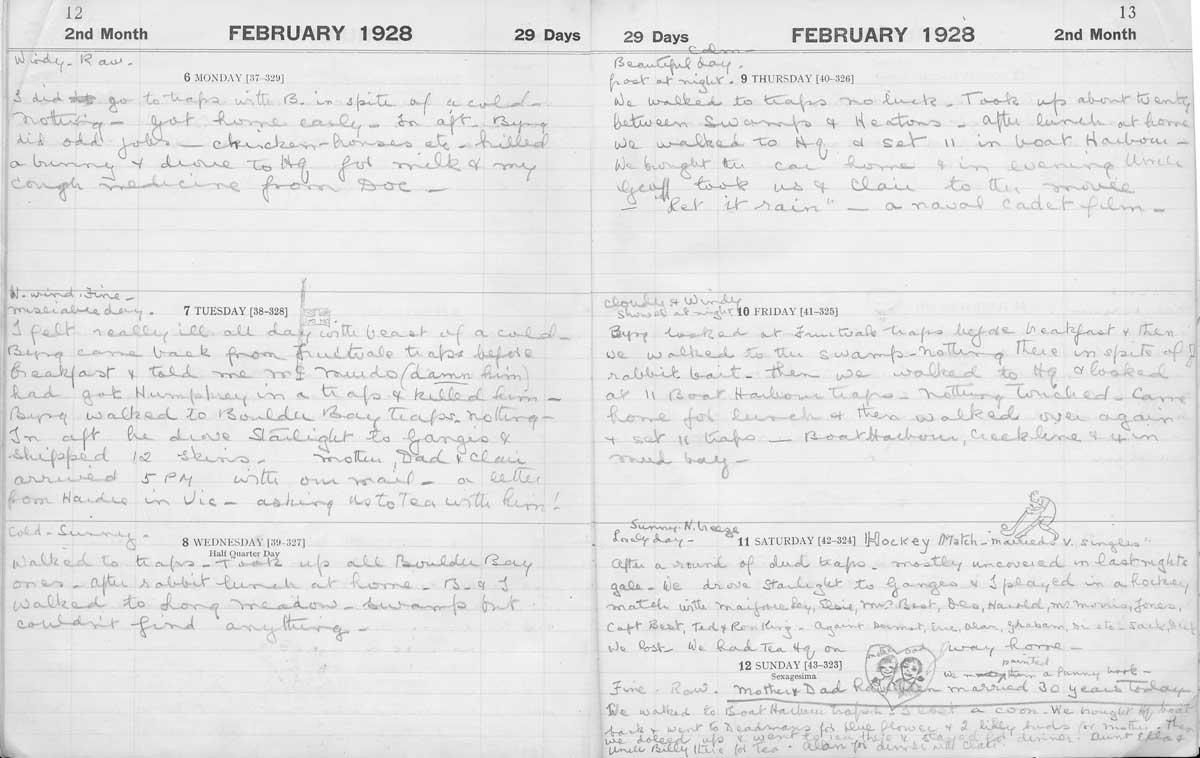 12
2nd Month FEBRUARY 1928 29 Days
Windy. Raw.
6 MONDAY [37–329]
I did go to traps with B. in spite of a cold –
nothing – got home early – In aft. Byng
did odd jobs – chicken-houses etc – killed
a bunny & drove to Hq for milk & my
cough medicine from Doc –
N. wind. Fine –
miserable day.
7 TUESDAY [38–328]
I felt really ill all day with beast of a cold –
Byng came back from Fruitvale traps before
breakfast & told me (damn him)
had got Humphrey in a trap & killed him –
Byng walked to Boulder Bay traps – nothing –
In aft he drove Starlight to Ganges &
shipped 12 skins. Mother, Dad & Clair
arrived 5 PM with our mail – a letter
from in Vic – asking us to Tea with him!
Cold – Sunny –
8 WEDNESDAY [39–327]
Half Quarter Day
Walked to traps – Took up all Boulder Bay
ones – After rabbit lunch at home – B. & I
walked to Long Meadow – swamp but
couldn't find anything –
13
29 Days FEBRUARY 1928 2nd Month
Calm –
Beautiful day.
frost at night.
9 THURSDAY [40–326]
We walked to traps no luck – Took up about twenty
between Swamps & Heatons – After lunch at home
we walked to Hq & set 11 in boat Harbour –
We brought the car home & in evening Uncle
Geoff took us & Clair to the movie
– "Let it rain" – a naval cadet film –
Cloudy & Windy
Showed at night
10 FRIDAY [41–325]
Byng looked at Fruitvale traps before breakfast & then
we walked to the swamp – nothing there in spite of
rabbit bait – then we walked to Hq & looked
at 11 Boat Harbour traps – Nothing touched – Came
home for lunch & then walked over again
& set 11 traps – Boat Harbour, Creek line & 4 in
mud bay –
Sunny. N. breeze
Lovely day –
11 SATURDAY [42–324] Hockey Match – married v. singles"
After a round of dud traps – mostly uncovered in last nights
gale – We drove Starlight to Ganges & I played in a hockey
match with Elsie, Mrs Best, Des, Harold, Mr Morris, Jones,
Capt Best, Ted & Ron King – Against Dermot, Eric, Alan, Graham, etc – Jack,
We lost – We had Tea Hq on way home –
12 SUNDAY [43–323]
Sexagesima
Mother Dad
we painted them a funny book –
Fine. Raw. Mother & Dad have been married 30 years today
We walked to Boat Harbour traps – I lost a coon – We brought Hq boat
back & went to Deadmans for blue flower & 2 lilly buds for mother – Then
we dressed up & went to & stayed for dinner. Aunt Ella &
Uncle Billy there for Tea. Alan for dinner